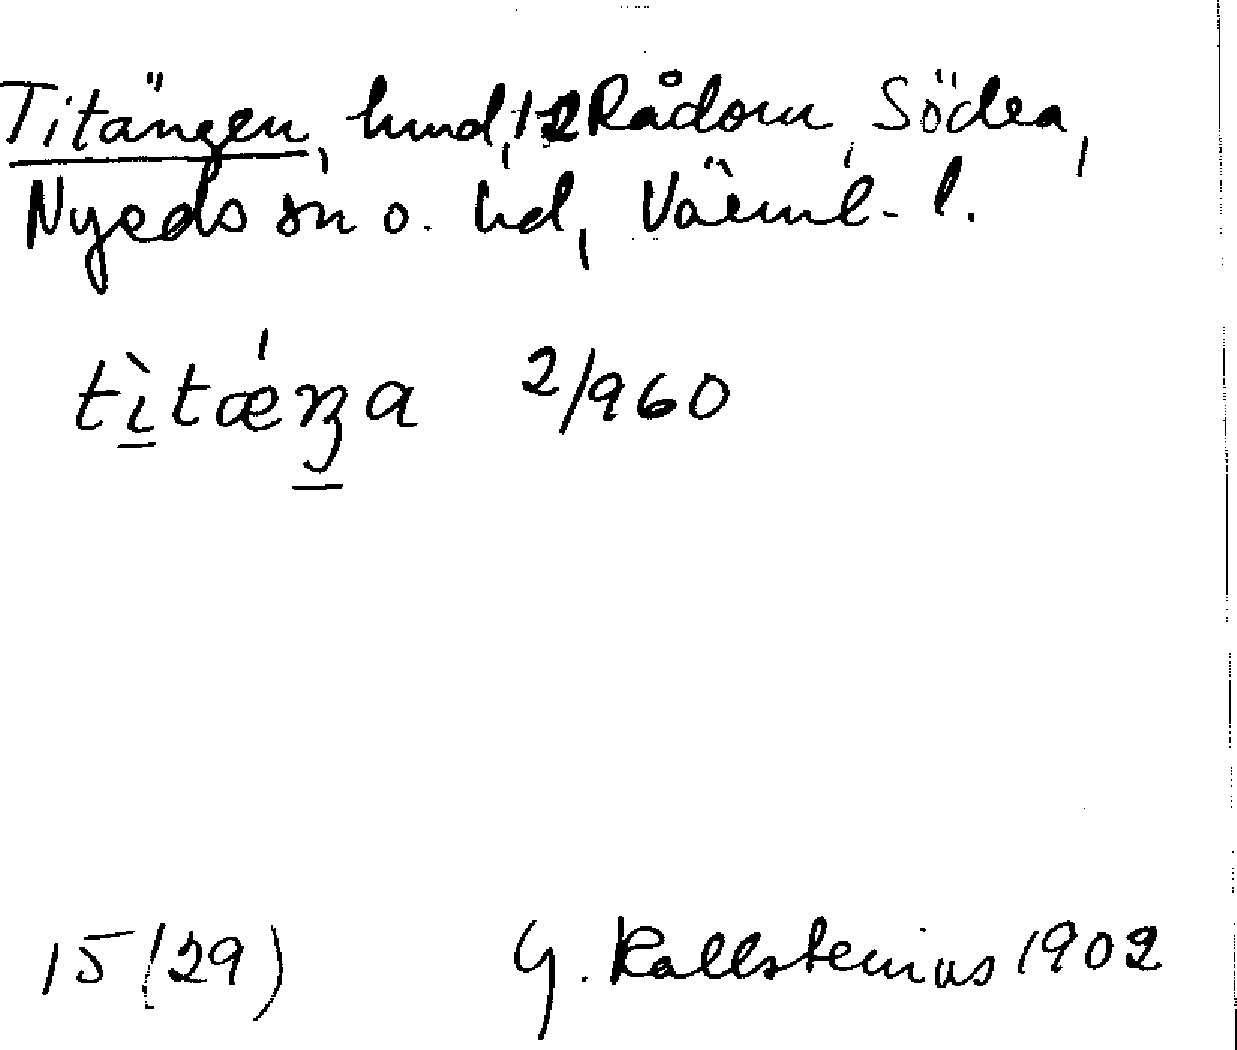 Titängen, hmd, 12 Rådom, Södra,
Nyeds sn o. hd, Värml. l.
tìtǽŋa 2/960
15 (29) G. Kallstenius 1902